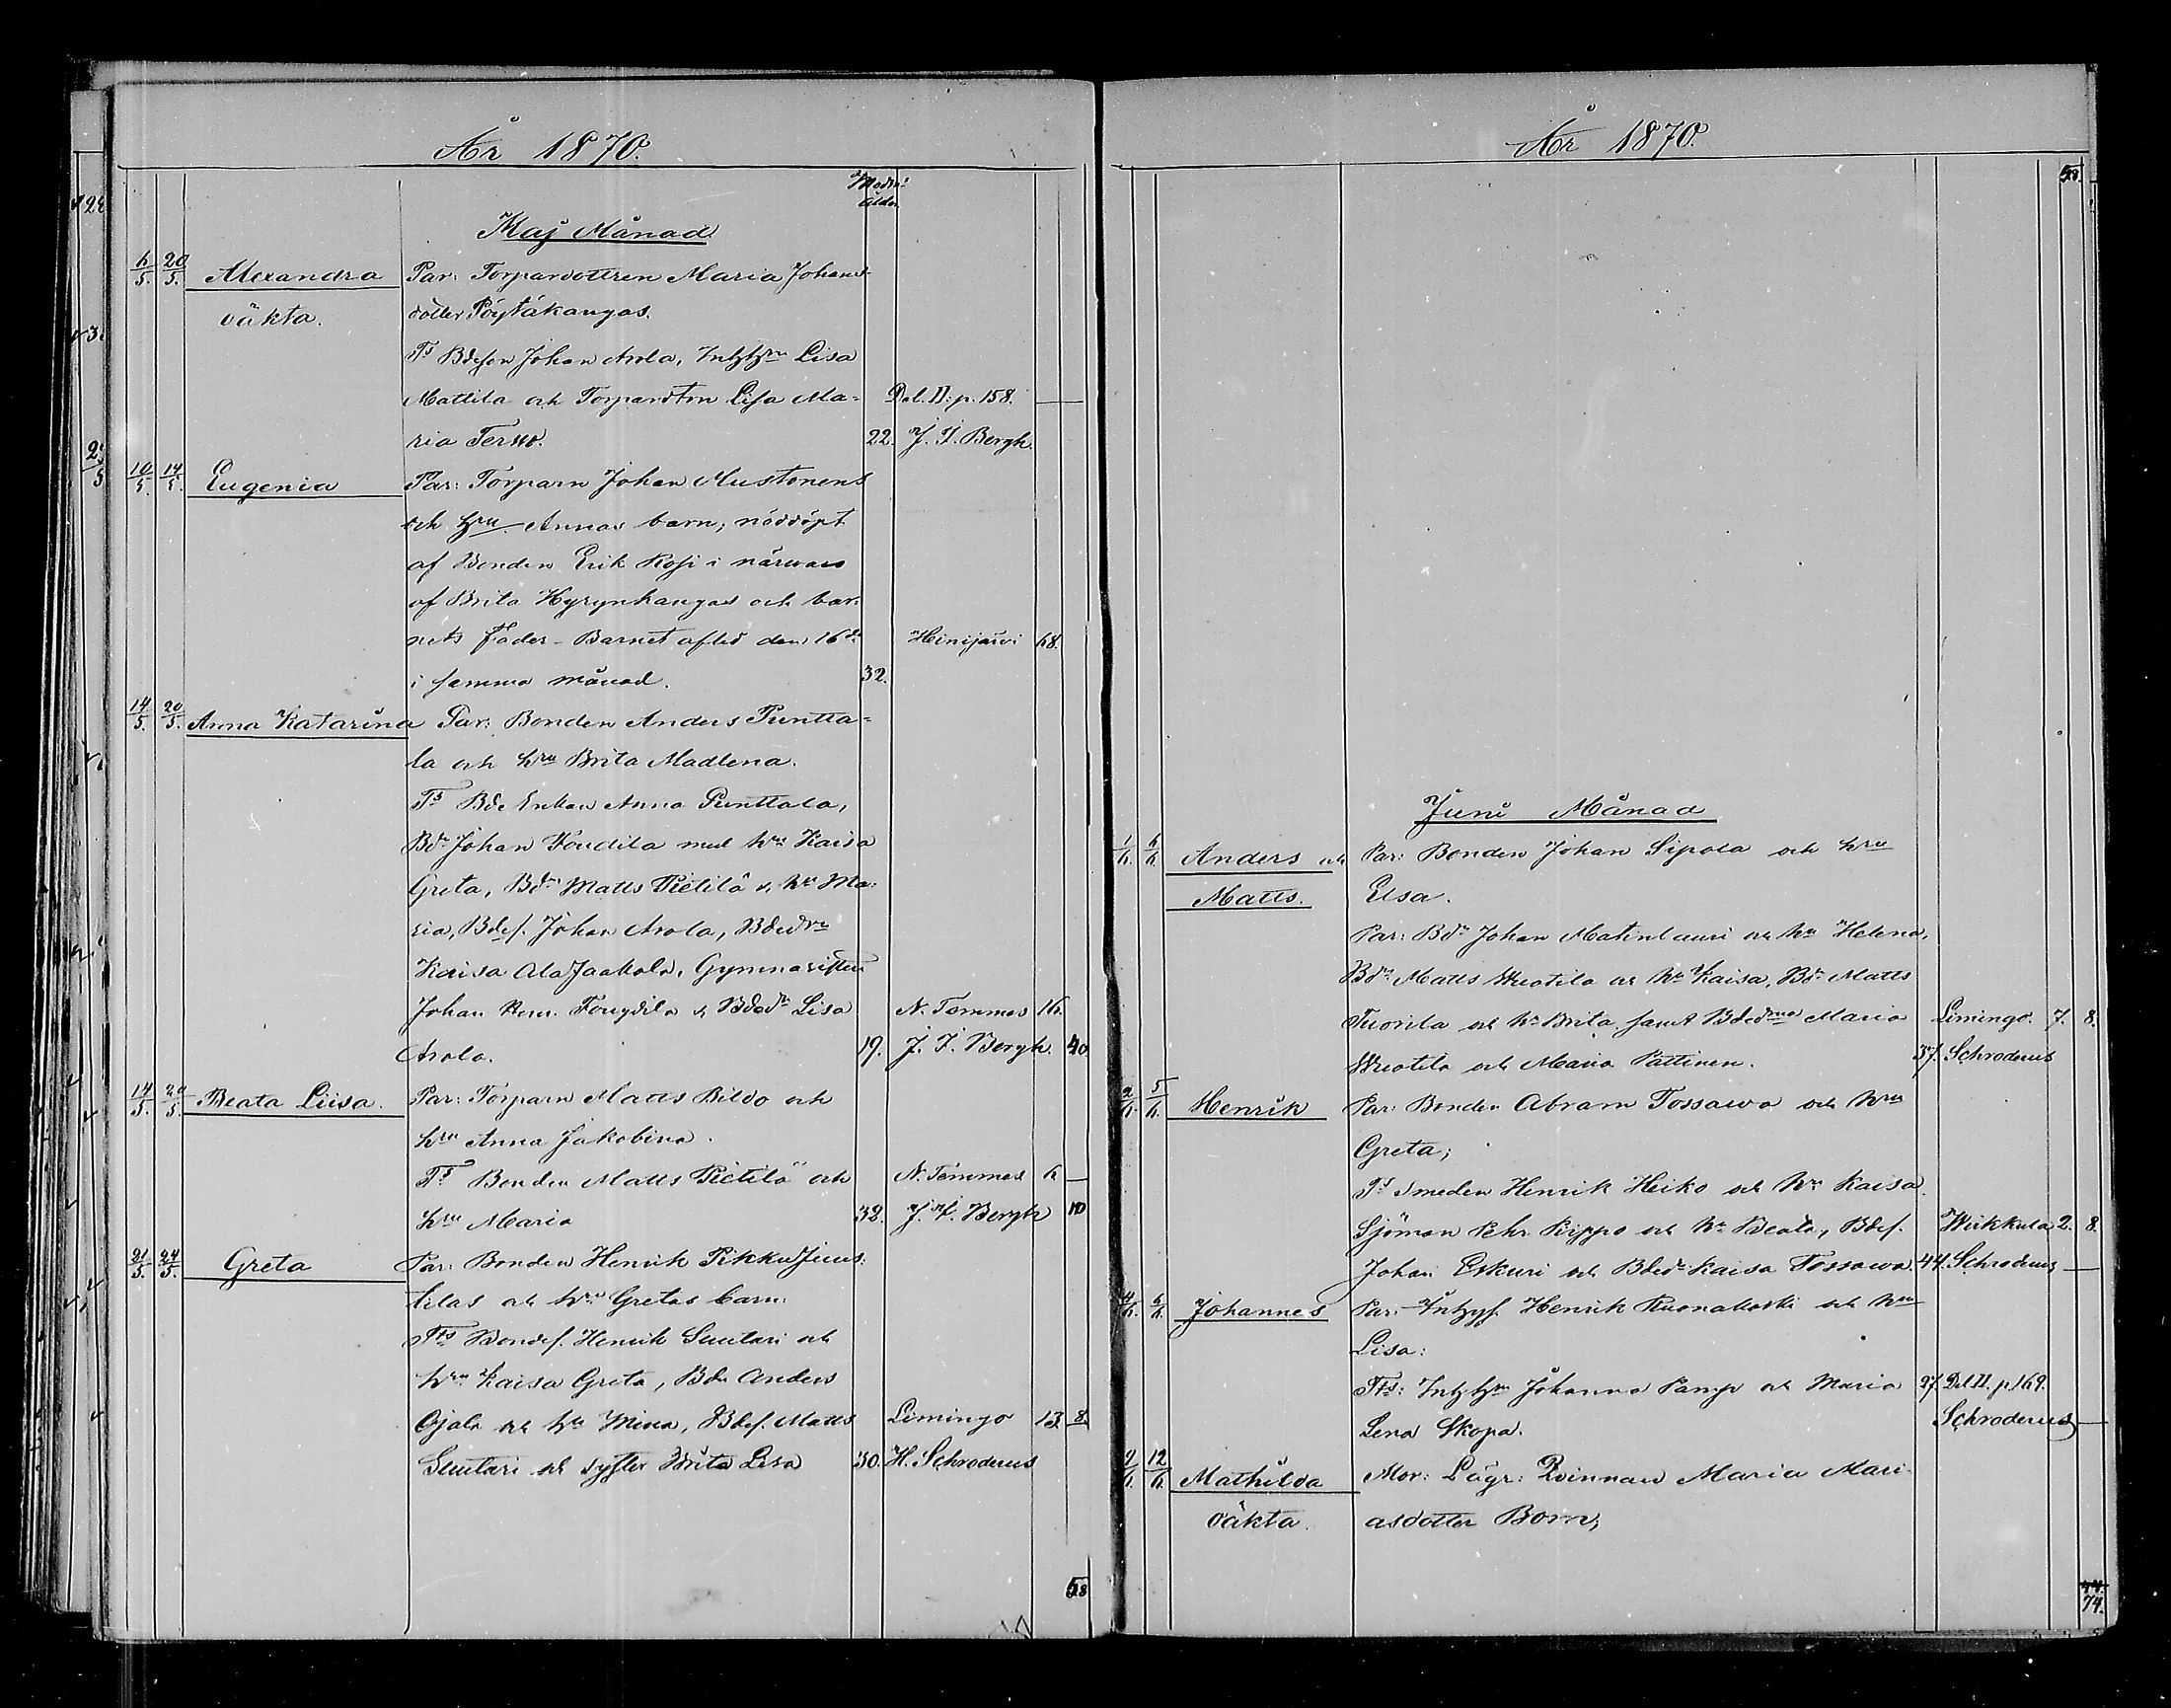 År 1870.
Modrs
ålder.
Maj Månad.
6/5. 20/5. Alexandra Par: Torpardottren Maria Johans-
oäkta. dotter Pöytäkangas.
Ts Bdeson Johan Arola, Inhhrn Lisa
Mattila och Torpardtrn Lisa Ma= Del. II. p. 158.
ria Terwo. 22. J. I. Bergh.
10/5. 14/5. Eugenia Par: Torparn Johan Mustonens
och hru Annas barn; nöddöpt
af Bonden Erik Kosi i närwaro
af Brita Hyrynkangas och bar-
nets fader - Barnet afled den 16de Heinijärvi 68.
i samma månad. 32.
14/5. 20/5. Anna Katarina Par: Bonden Anders Puntta=
la och hru Brita Madlena.
Ts Bde Enkan Anna Punttala,
Bdn Johan Foudila med hru Kaisa
Greta, Bdn Matts Pietilä o. hru Ma=
ria, Bdes. Johan Arola, Bdedrn
Kaisa Ala Jaakola, Gymnasisten
Johan Fougdila o. Bdedr Lisa N. Temmes 16.
Arola. 19. J. I. Bergh. 40.
14/5. 20/5. Beata Liisa. Par: Torparn Matts Bildo och
hru Anna Jakobina.
Ts Bonden Matts Pietilä och N. Temmes 6
hru Maria 32. J. I. Bergh 10
21/5. 24/5. Greta Par: Bonden Henrik Pikkujuus-
tilas och hru Gretas barn:
Fts Bondes. Henrik Suutari och
hru Kaisa Greta, Bde Anders
Ojala och hru Mina, Bdes. Matts Limingo 13. 8.
Suutari och syster Brita Lisa 30. H. Schroderus
58
År 1870.
58.
Juni Månad
1/6. 6/6. Anders och Par: Bonden Johan Sipola och hru
Matts. Elsa.
Par: Bdn Johan Matinlauri och hru Helena,
Bdn Matts Wuotila och hru Kaisa, Bdn Matts
Tuorila och hru Brita samt Bdedrne Maria Limingo. 7. 8.
Wuotila och Maria Pättinen. 37. Schroderus
2/6. 5/6. Henrik Par: Bonden Abram Tossawa och hru
Greta;
Ts Smeden Henrik Heiko och hru Kaisa.
Sjöman Pehr Kippo och hru Beata, Bdes. Wirkkula 2. 8.
Johan Eskuri och Bdedr Kaisa Tossawa 44. Schroderus
4/6. 6/6. Johannes Par: Inhys. Henrik Ruonakoski och hru
Lisa:
Fts: Inhhrn Johanna Pamp och Maria 27. Del II. p. 169.
Lena Skopa. Schroderus
9/6. 12/6. Mathilda Mor: Lägr: Qvinnan Maria Mari-
oäkta. asdotter Born,
74.